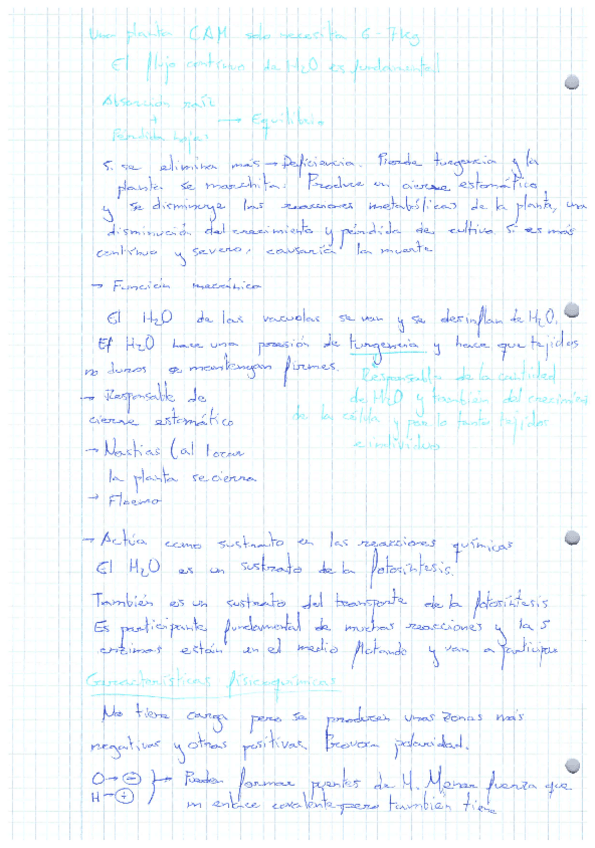 Una planta CAM solo necesita 6-7kg
El flujo continuo de H2O es fundamental
Absorción raíz
→ Equilibrio
Pérdida hojas
Si se elimina más → Deficiencia. Pierde turgencia y la
planta se marchita. Produce un cierre estomático
y se disminuye las reacciones metabólicas de la planta, una
disminución del crecimiento y pérdida de cultivo. Si es más
continuo y severo, causaría la muerte
→ Función mecánica
El H2O de las vacuolas se van y se desinflan de H2O.
El H2O hace una presión de turgencia y hace que tejidos
no duros se mantengan firmes.
Responsable de la cantidad
de H2O y también del crecimien
de la célula y por lo tanto tejidos
e individuo
→ Responsable de
cierre estomático
→ Nastias (al tocar
la planta se cierra
→ Floema
→ Actúa como sustrato en las reacciones químicas
El H2O es un sustrato de la fotosíntesis.
También es un sustrato del transporte de la fotosíntesis
Es participante fundamental de muchas reacciones y las
enzimas están en el medio flotando y van a participar
Características fisicoquímicas
No tiene carga pero se producen unas zonas más
negativas y otras positivas. Provoca polaridad.
O → ⊖ } → Pueden formar puentes de H. Menor fuerza que
H → ⊕ un enlace covalente pero también tiene